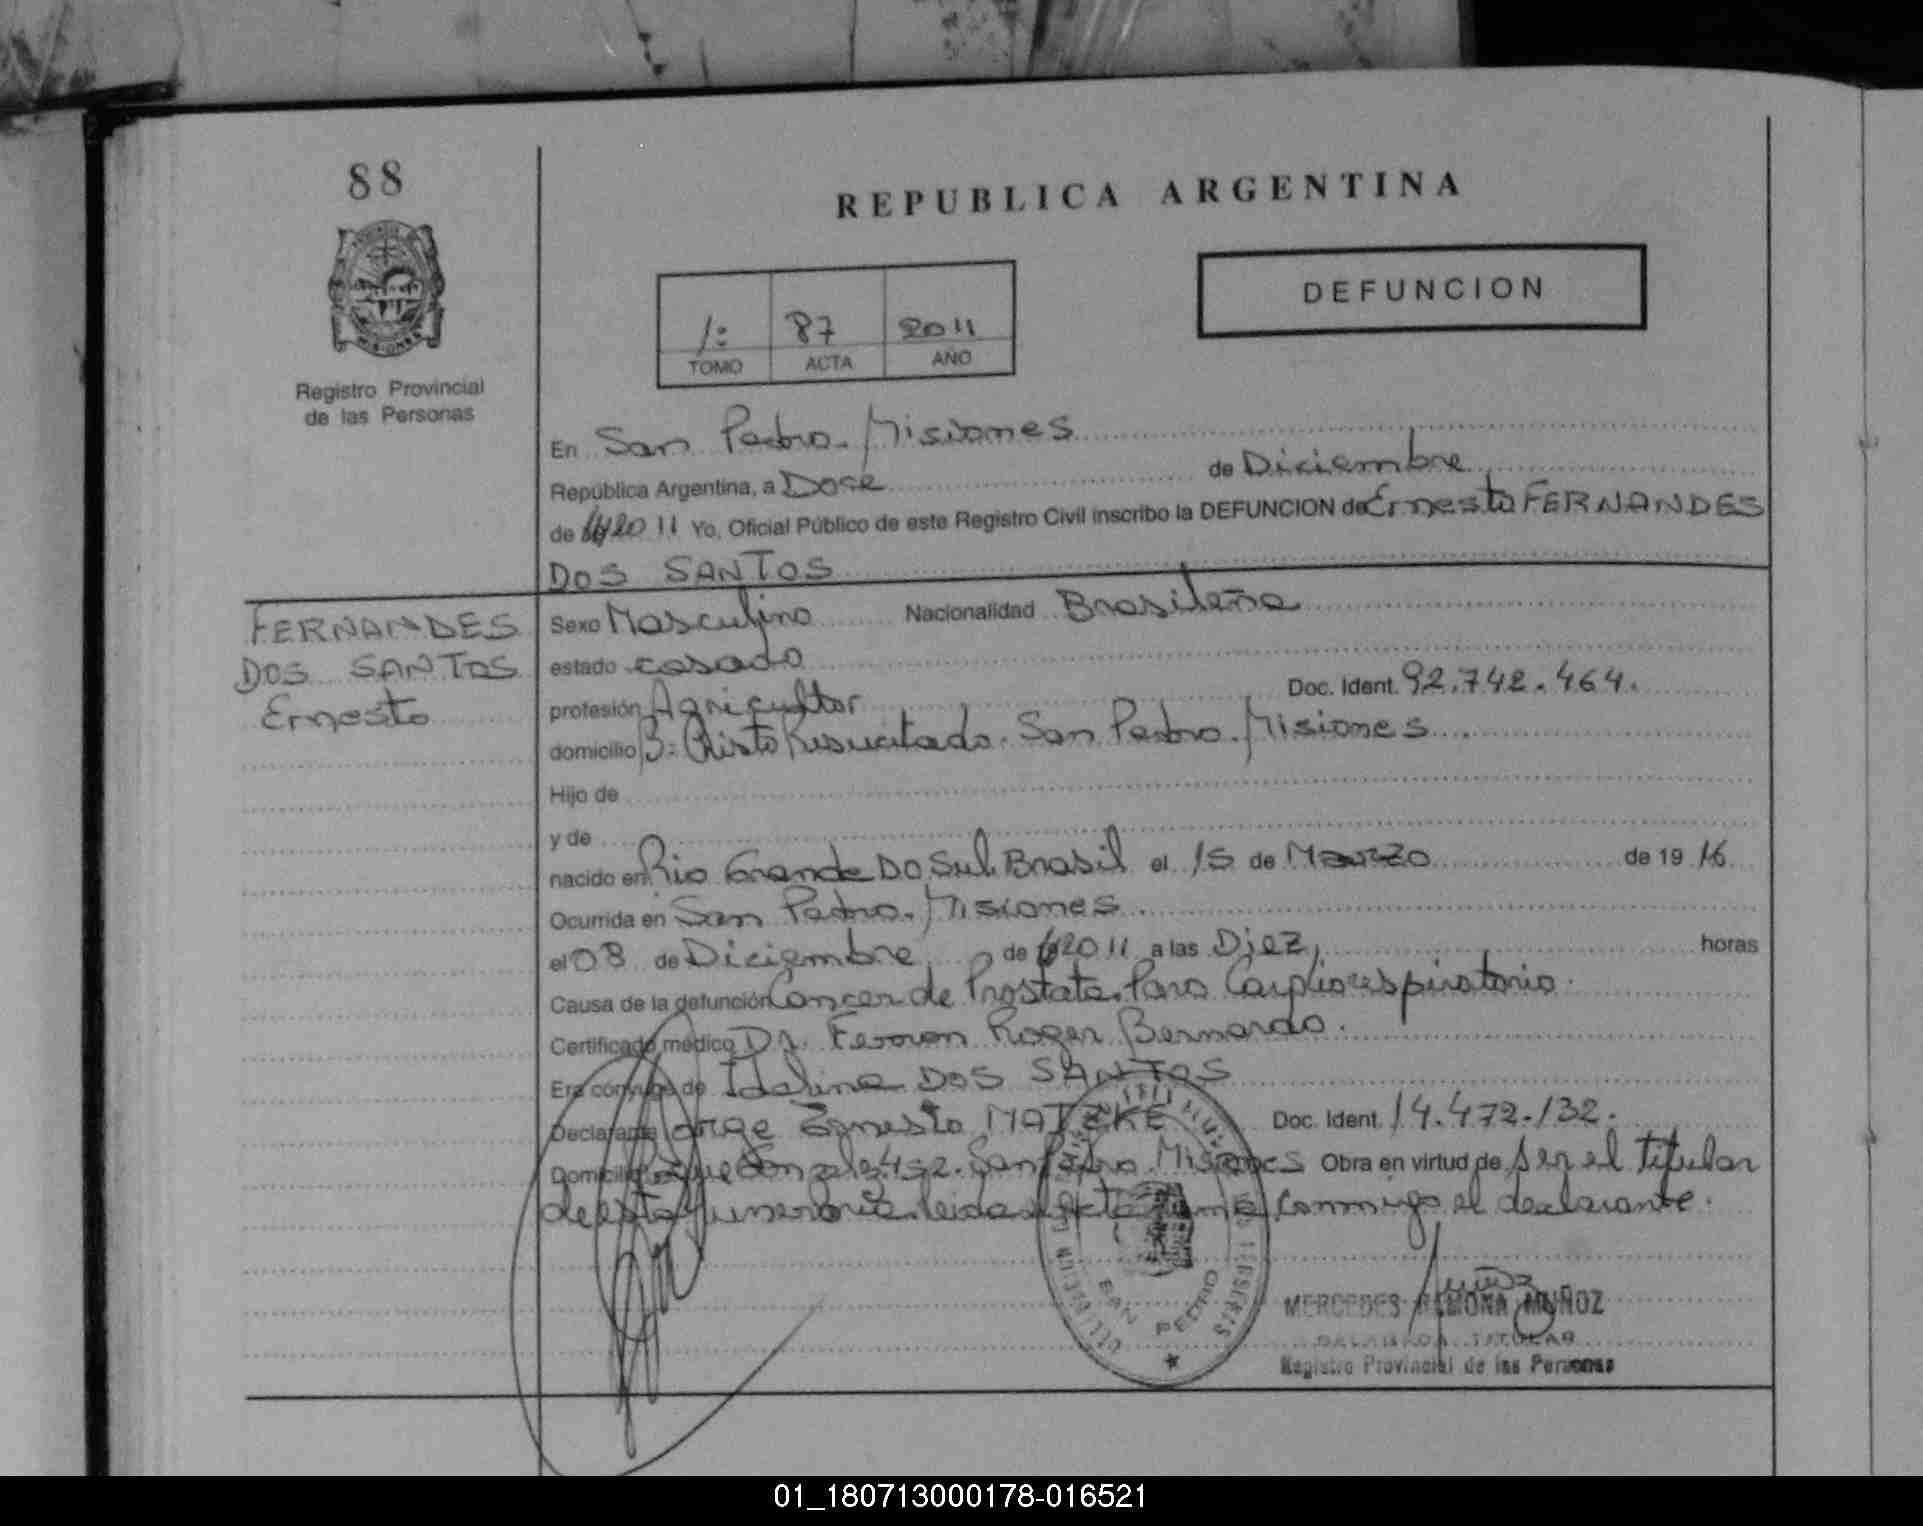 88
REPUBLICA ARGENTINA
DEFUNCION
1: 87 2011
TOMO ACTA AÑO
MISIONES
Registro Provincial
de las Personas
En San Pedro. Misiones
República Argentina, a Doce de Diciembre
de 2011 Yo, Oficial Público de este Registro Civil inscribo la DEFUNCION de Ernesto FERNANDES
DOS SANTOS
FERNANDES
DOS SANTOS
Ernesto
Sexo Masculino Nacionalidad Brasileña
estado casado
profesión Agricultor Doc. Ident. 92.742.464.
domicilio B: Cristo Resucitado. San Pedro. Misiones
Hijo de
y de
nacido en Rio Grande DO Sul. Brasil el 15 de Marzo de 19 16
Ocurrida en San Pedro. Misiones
el 08 de Diciembre de 2011 a las Diez, horas
Causa de la defunción Cancer de Prostata. Paro Cardiorespiratorio.
Certificado médico Dr. Roger Bernardo.
Era cónyuge de Idalina DOS SANTOS
Declarante Jorge Ernesto MATZKE Doc. Ident. 14.472.132.
Domicilio Roque Gonzalez 452. San Pedro. Misiones Obra en virtud de ser el titular
de esta funeraria. leida el acta firma conmigo el declarante.
SAN PEDRO
MERCEDES RAMONA MUÑOZ
DELEGADA TITULAR
Registro Provincial de las Personas
01_180713000178-016521